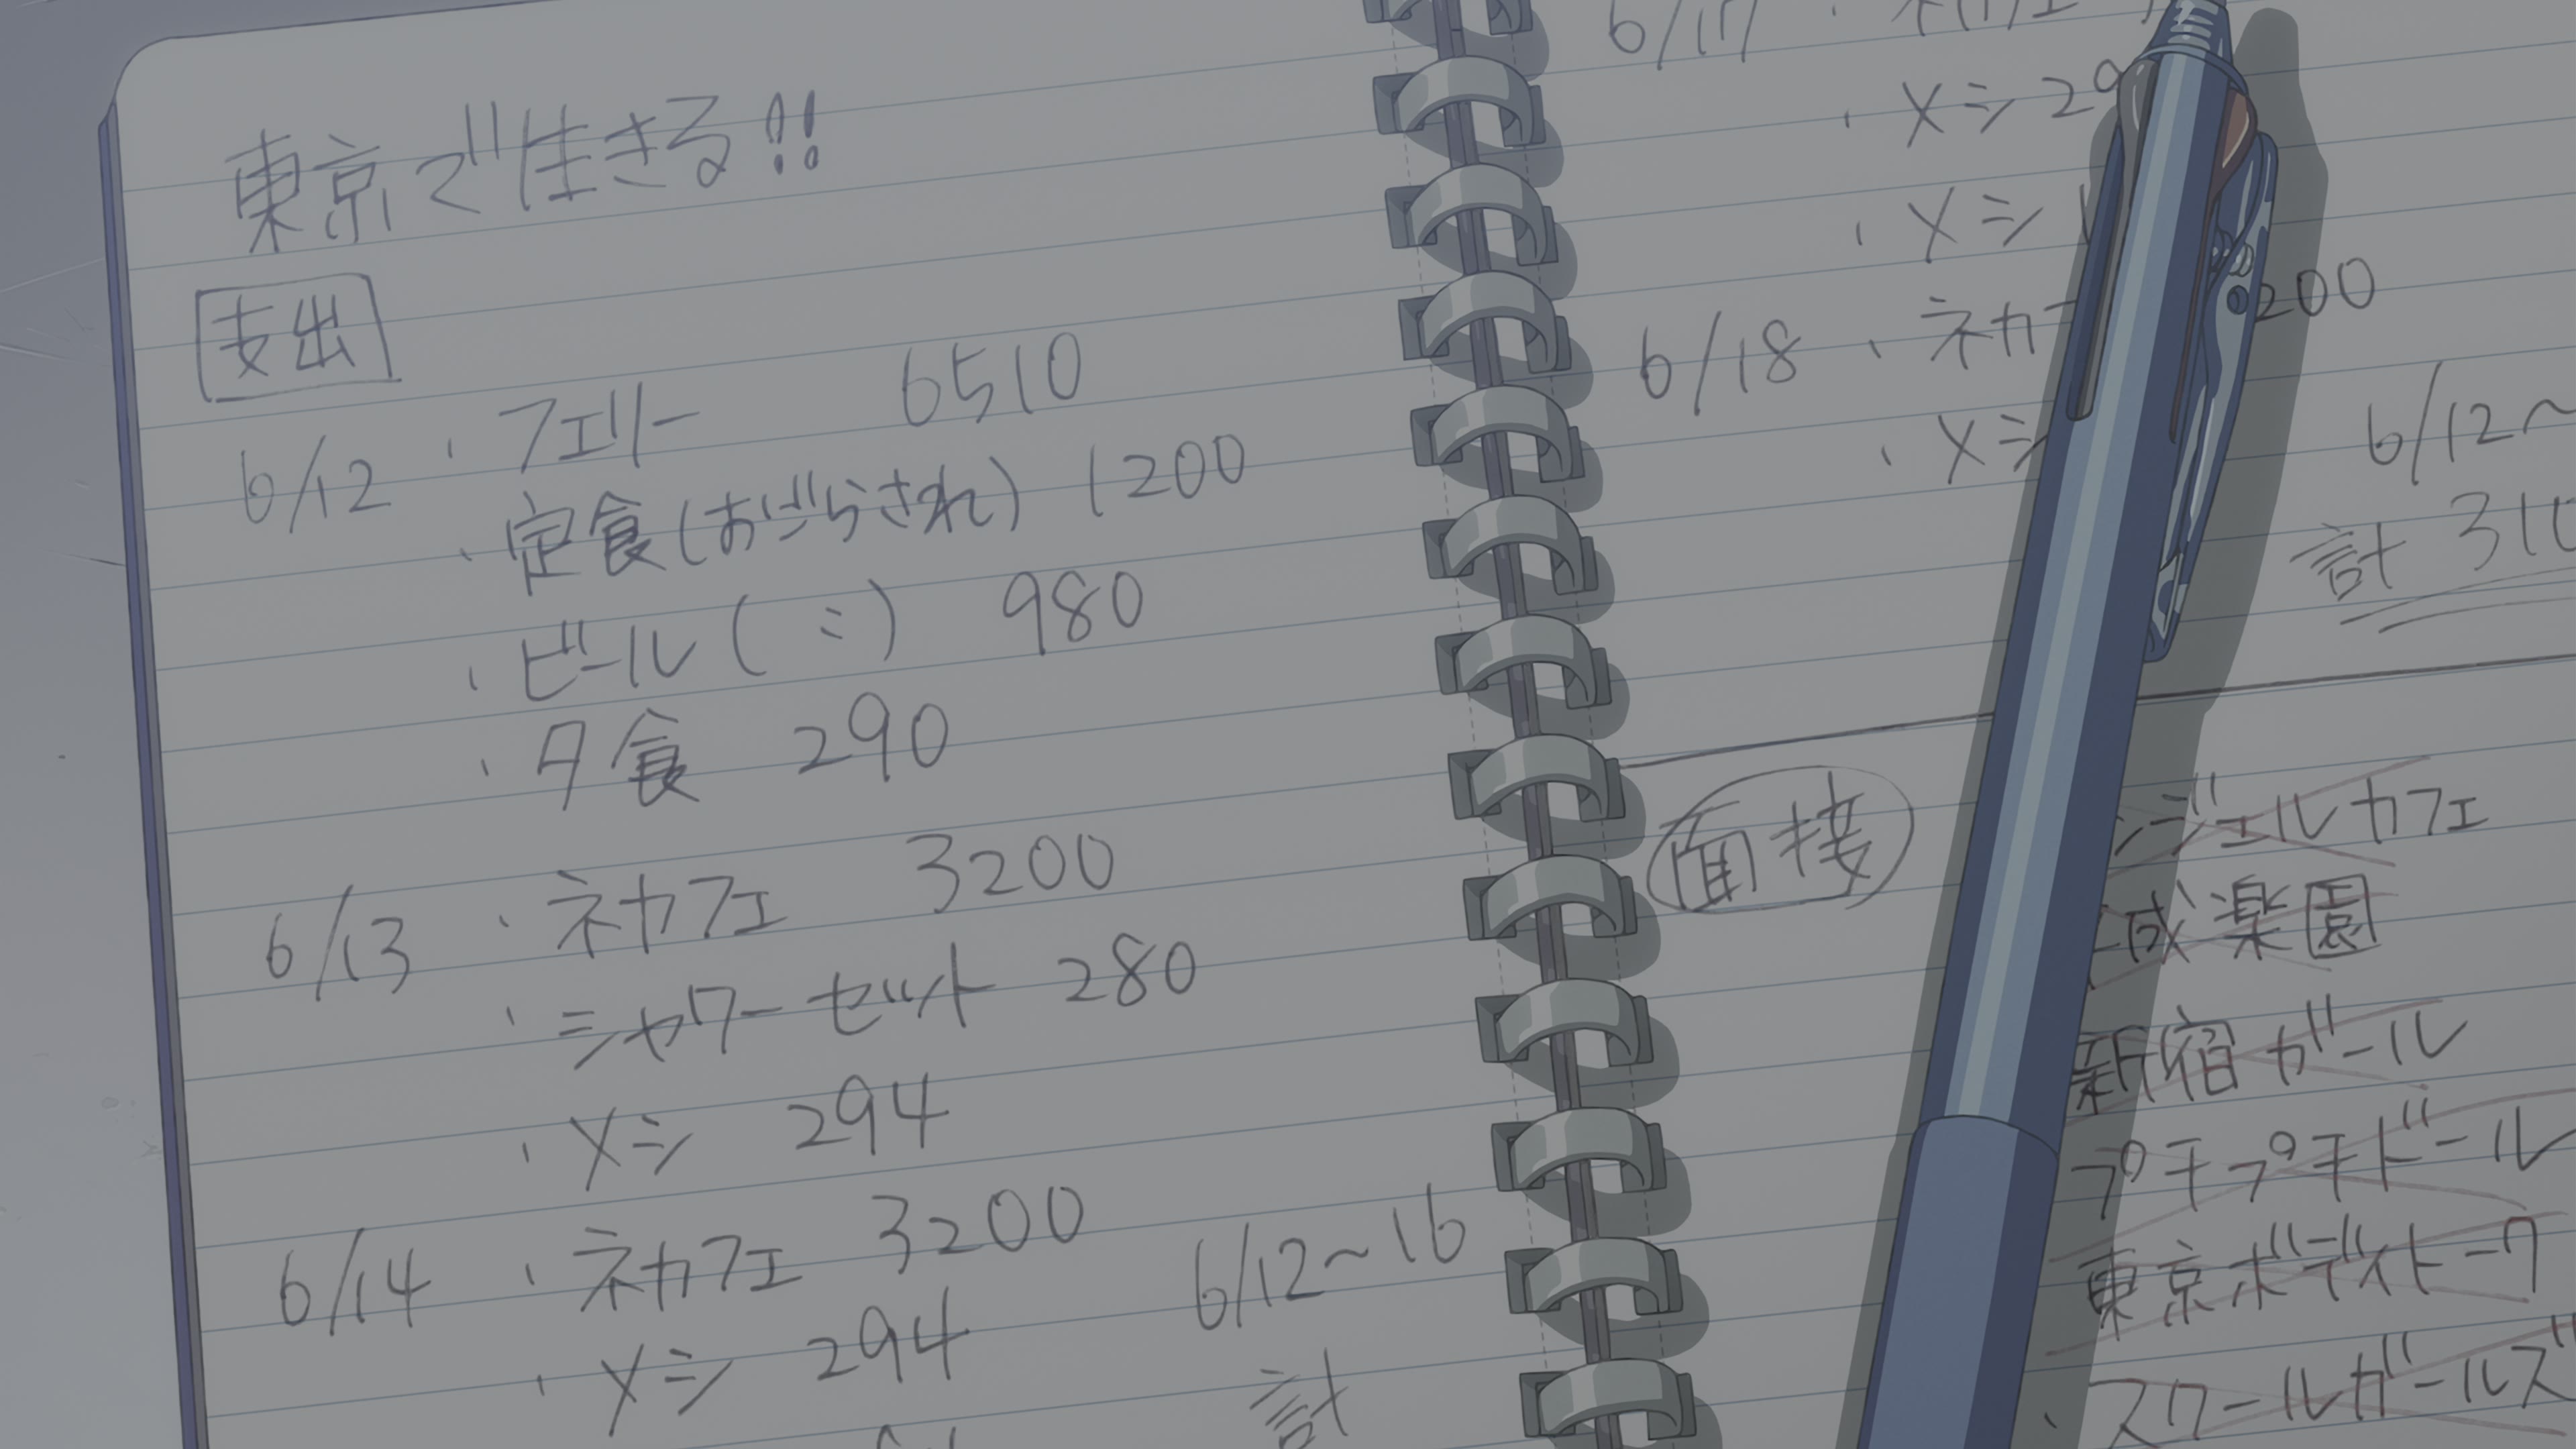 東京で生きる!!
支出
6/12 ・フェリー 6510
・定食(おごらされ) 1200
・ビール(〃) 980
・夕食 290
6/13 ・ネカフェ 3200
・シャワーセット 280
・メシ 294
6/14 ・ネカフェ 3200
・メシ 294
6/12~16
計
6/17 ・ネカフェ
・メシ 29
・メシ
6/18 ・ネカフ 200
・メシ
6/12~
計 310
面接
ジェルカフェ
成楽園
新宿ガール
プチプチドール
東京ボディトーク
・スクールガールズ